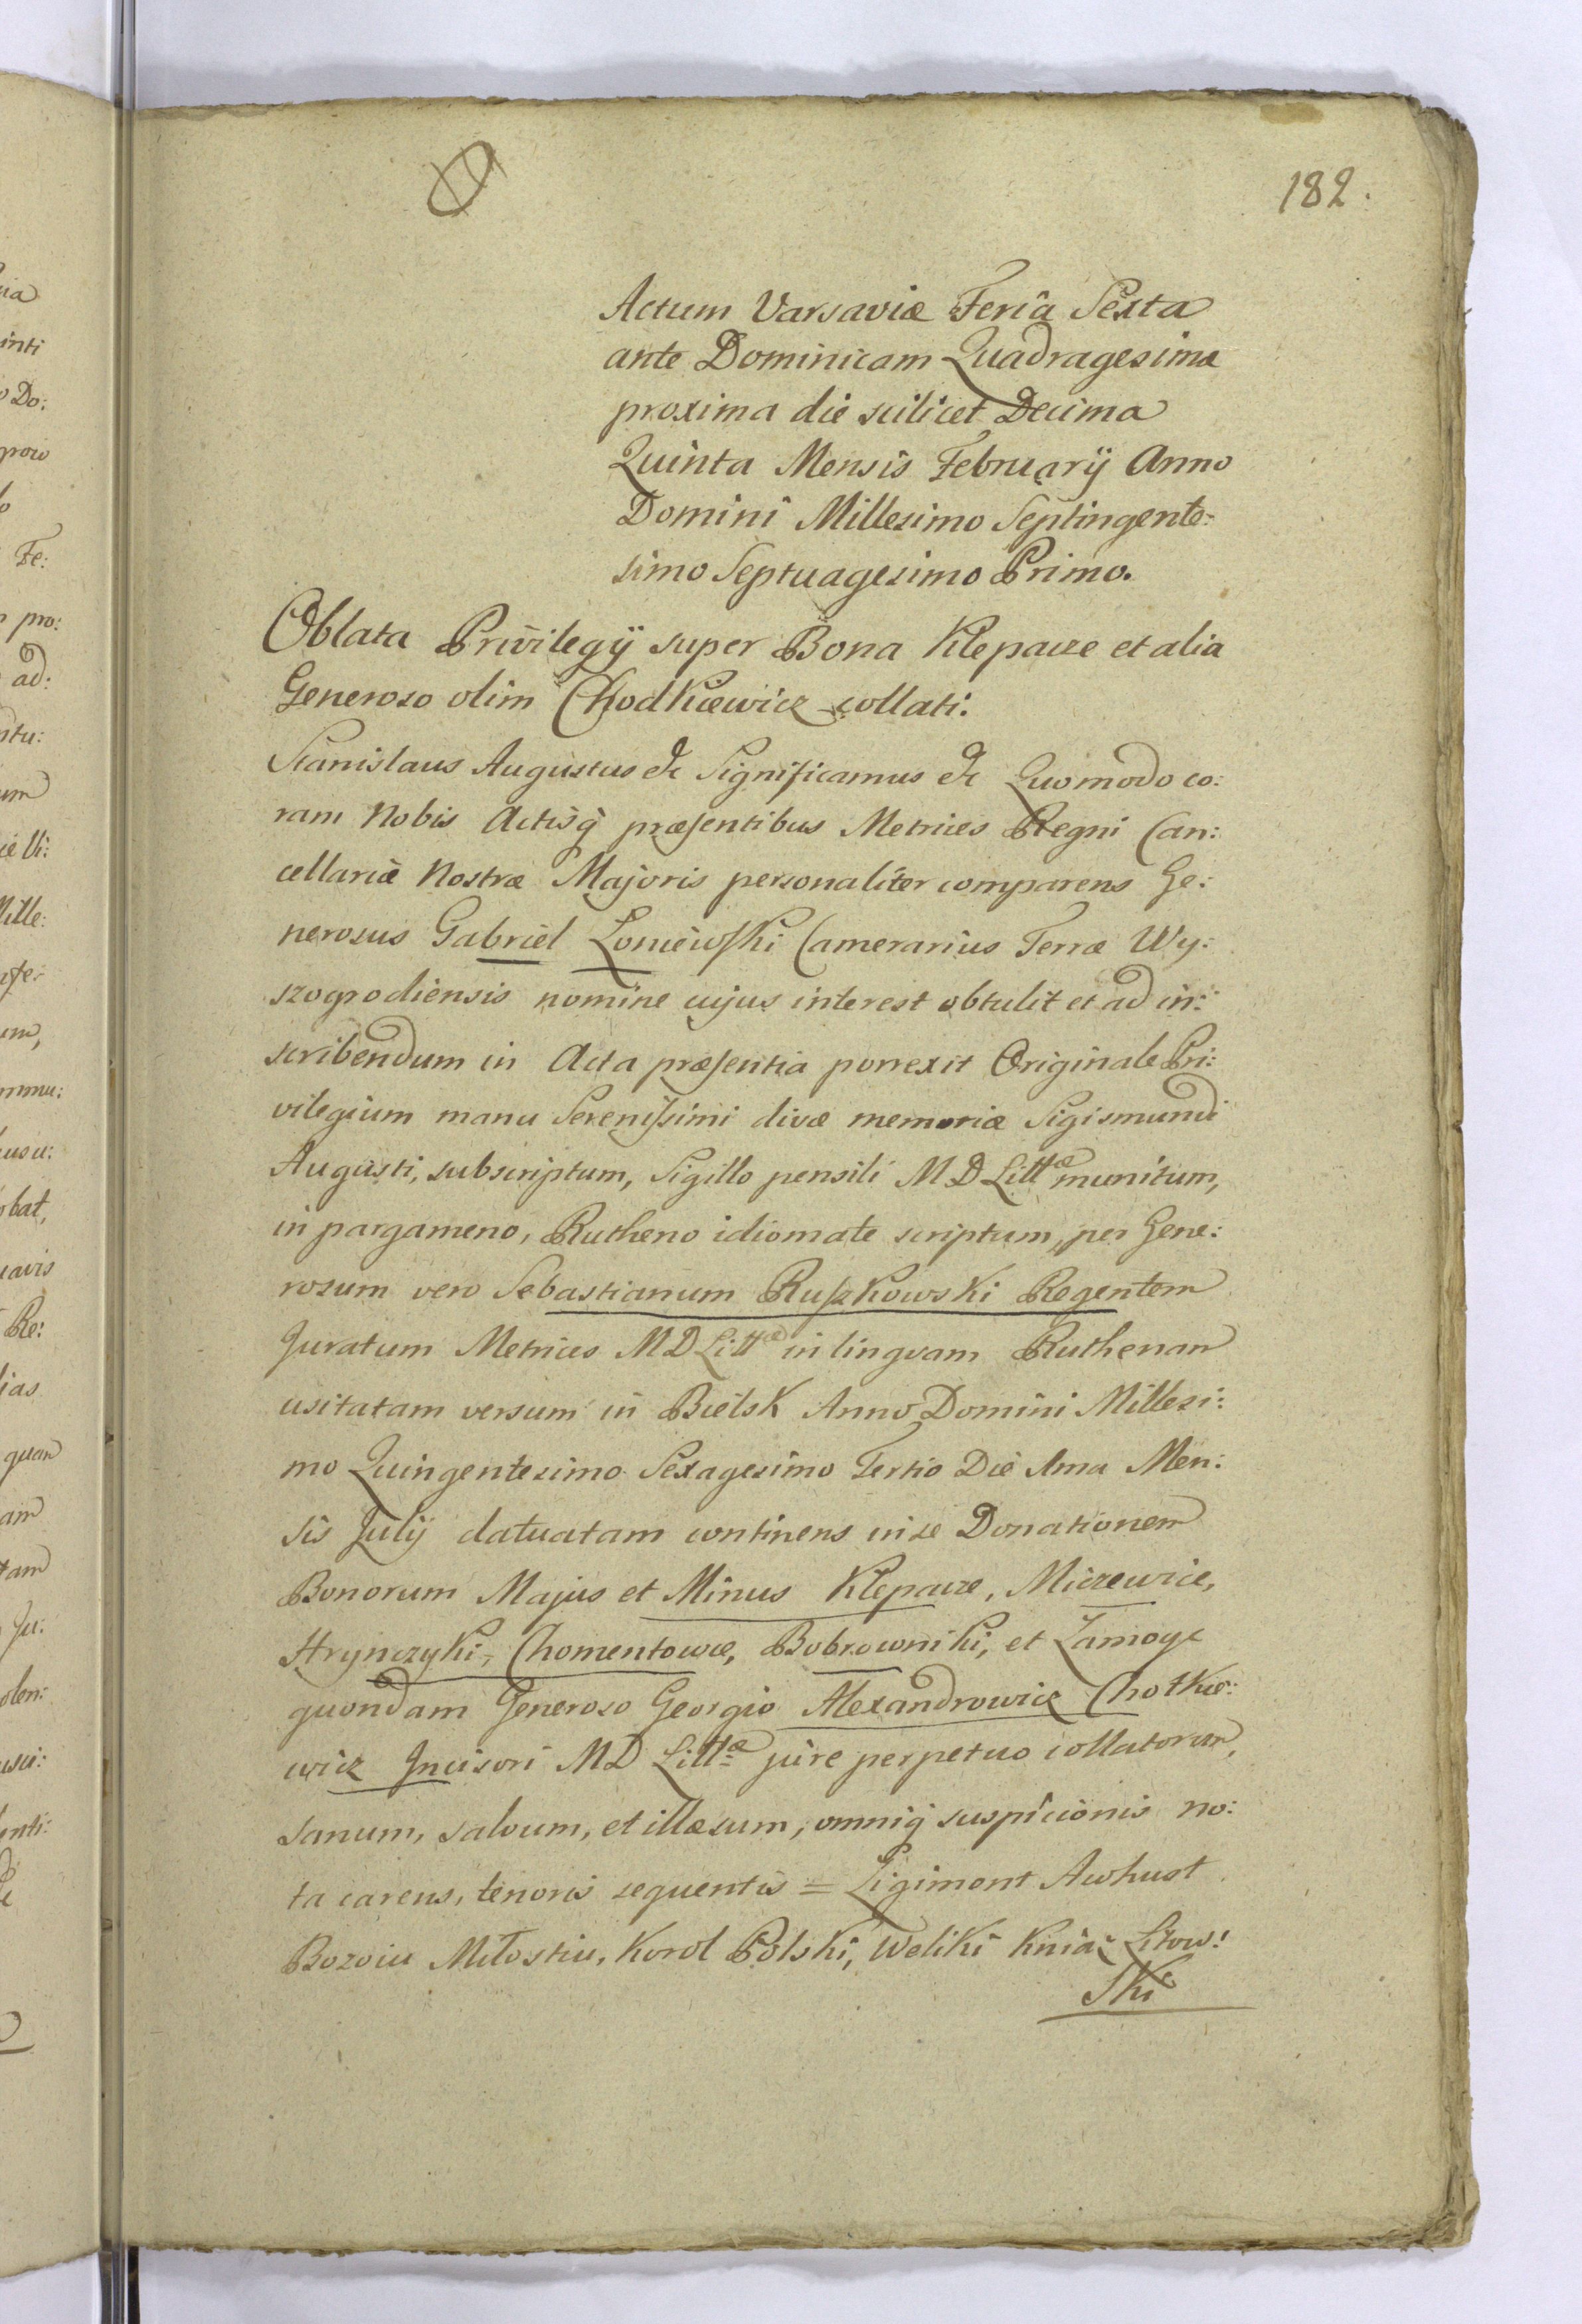 182.
Actum Varsaviæ Feriâ Sexta
ante Dominicam Quadragesimæ
proxima die scilicet Decima
Quinta Mensis Februarÿ Anno
Domini Millesimo Septingente-
simo Septuagesimo Primo.
Oblata Privilegÿ super Bona Klepacze et alia
Generoso olim Chodkiewicz collati.
Stanislaus Augustus &c Significamus &c Quomodo co:
ram Nobis Actisq præsentibus Metrices Regni Can:
cellariæ Nostræ Majoris personaliter comparens Ge:
nerosus Gabriel Łoniewski Camerarius Terræ Wy:
szogrodiensis nomine cujus interest obtulit et ad in:
scribendum in Acta præsentia porrexit Originale Pri:
vilegium manu Serenissimi divæ memoriæ Sigismundi
Augusti, subscriptum, Sigillo pensili M D Littæ munitum,
in pargameno, Rutheno idiomate scriptum, per Gene:
rosum vero Sebastianum Ruszkowski Regentem
Juratum Metrices M D Littæ in lingvam Ruthenam
usitatam versum in Bielsk Anno Domini Millesi:
mo Quingentesimo Sexagesimo Tertio Die 1ma Men:
sis Julÿ datuatam continens in se Donationem
Bonorum Majus et Minus Klepacze, Miczewice,
Hrynczyki, Chomentowce, Bobrowniki, et Zamoyc
quondam Generoso Georgio Alexandrowicz Chotkie:
wicz Incisori M D Littæ jure perpetuo collatorum,
sanum, salvum, et illæsum, omniq suspicionis no:
ta carens, tenoris sequentis = Zigimont Awhust
Bozoiu Miłostiu, Korol Polski, Weliki Kniaź Litow:
Ski